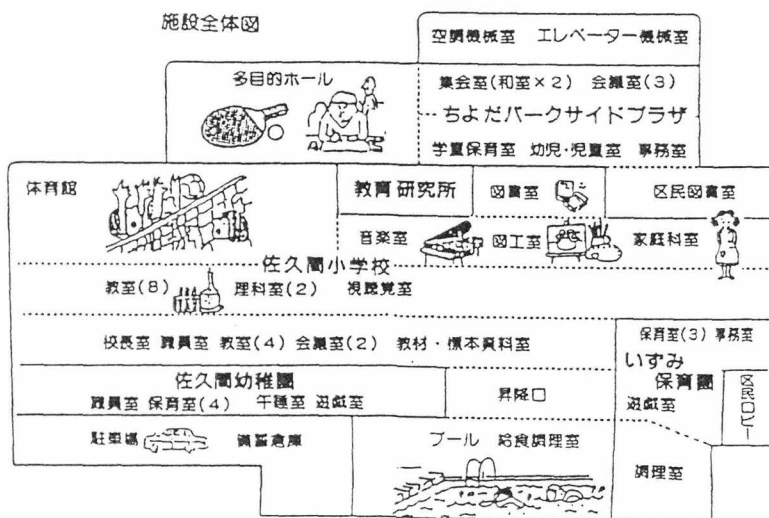 施設全体図
空調機械室 エレベーター機械室
多目的ホール
集会室(和室×2) 会議室(3)
ちよだパークサイドプラザ
学童保育室 幼児・児童室 事務室
体育館
教育研究所
図書室
区民図書室
音楽室
図工室
家庭科室
佐久間小学校
教室(8) 理科室(2) 視聴覚室
校長室 職員室 教室(4) 会議室(2) 教材・標本資料室
保育室(3) 事務室
いずみ
保育園
遊戯室
区民ロビー
佐久間幼稚園
職員室 保育室(4) 午睡室 遊戯室
昇降口
駐車場
備蓄倉庫
プール 給食調理室
調理室